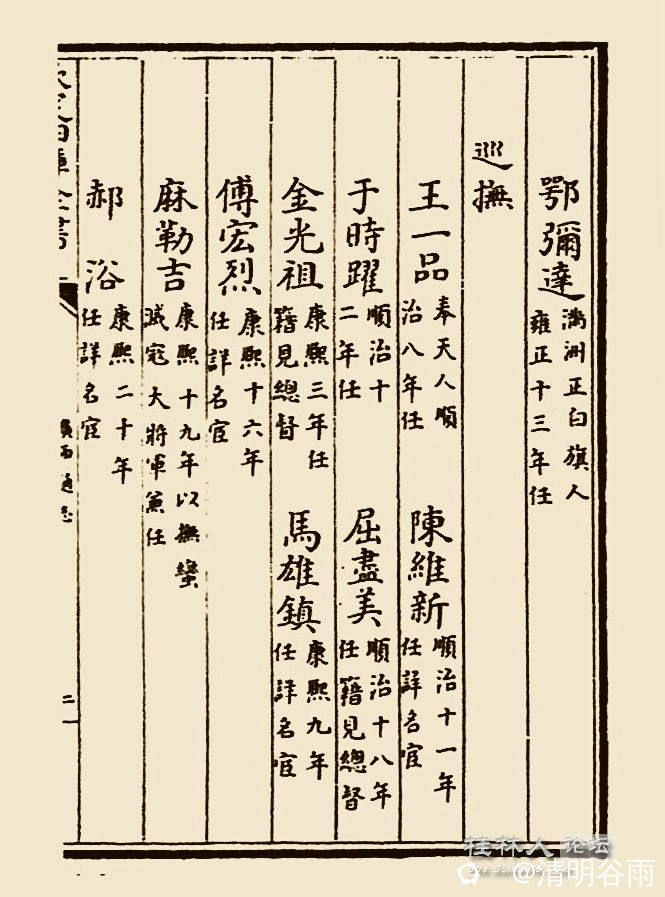 鄂彌達滿洲正白旗人雍正十三年任
巡撫
王一品奉天人順治八年任 陳維新順治十一年任詳名宦
于時躍順治十二年任 屈盡美順治十八年任籍見總督
金光祖康熙三年任籍見總督 馬雄鎮康熙九年任詳名宦
傅宏烈康熙十六年任詳名宦
麻勒吉康熙十九年以撫蠻滅寇大將軍兼任
郝浴康熙二十年任詳名宦
欽定四庫全書
廣西通志
二一
桂林人论坛
@清明谷雨